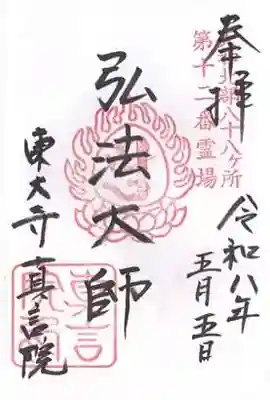 奉拝
北部八十八ヶ所
第十二番霊場
令和八年
五月五日
弘法大師
東大寺真言院